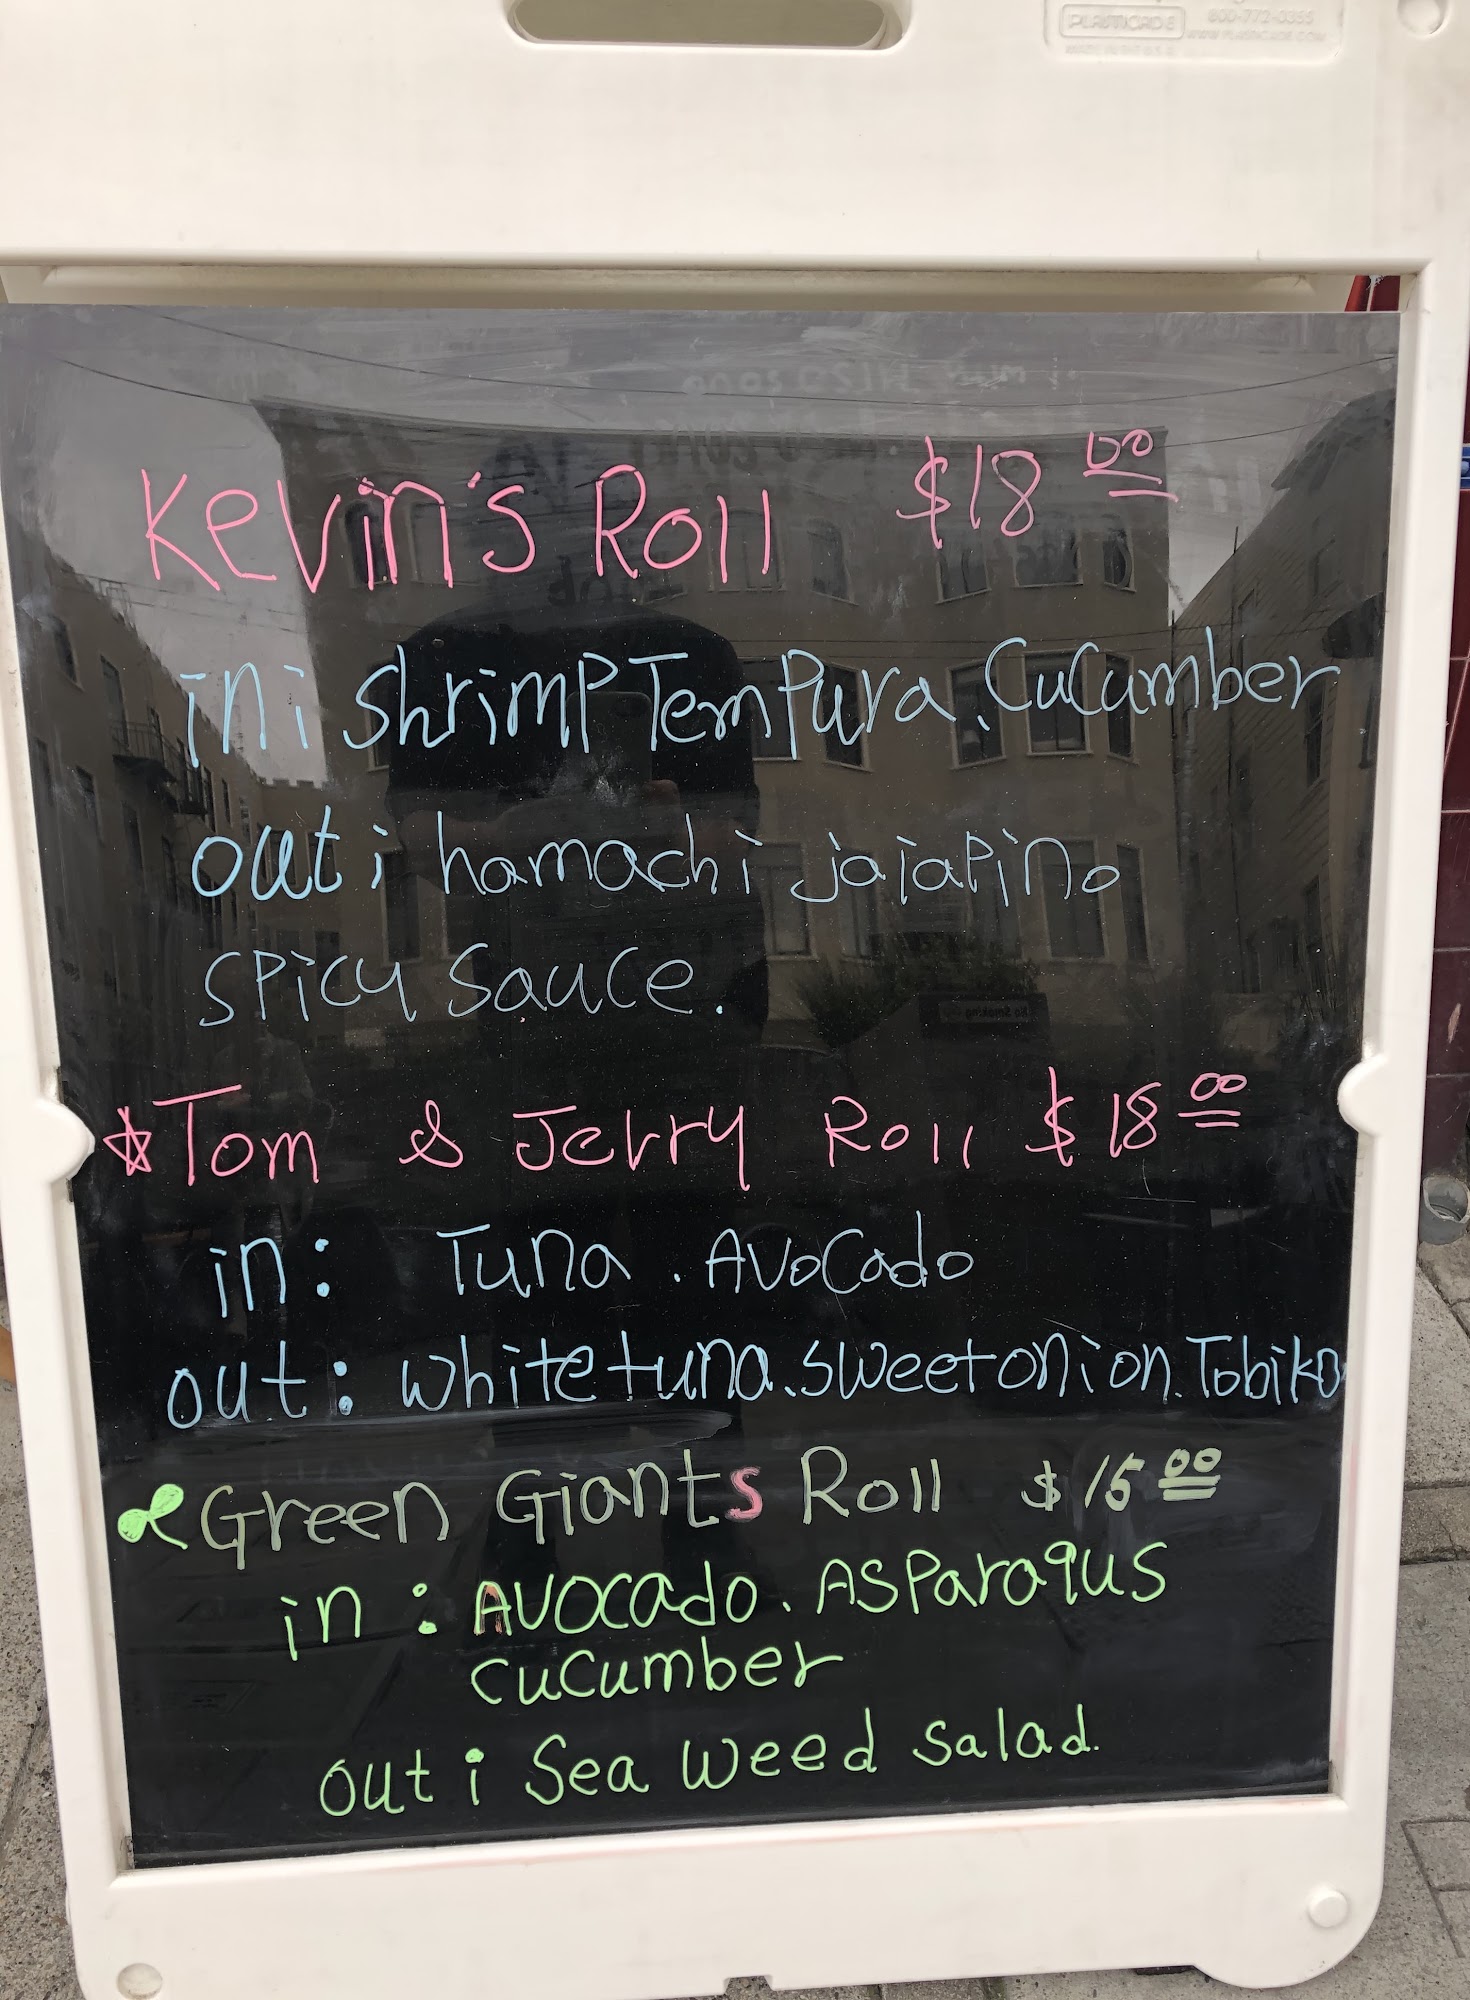 PLASTICADE
800-772-0355
WWW.PLASTICADE.COM
MADE IN U.S.A.
Kevin's Roll $18 00
in: Shrimp Tempura. Cucumber
out: hamachi jajapino
spicy sauce.
Tom & Jerry Roll $18 00
in: Tuna. Avocado
out: white tuna. sweet onion. Tobiko
Green Giants Roll $15 00
in: Avocado. Asparagus
cucumber
out: Sea weed salad.